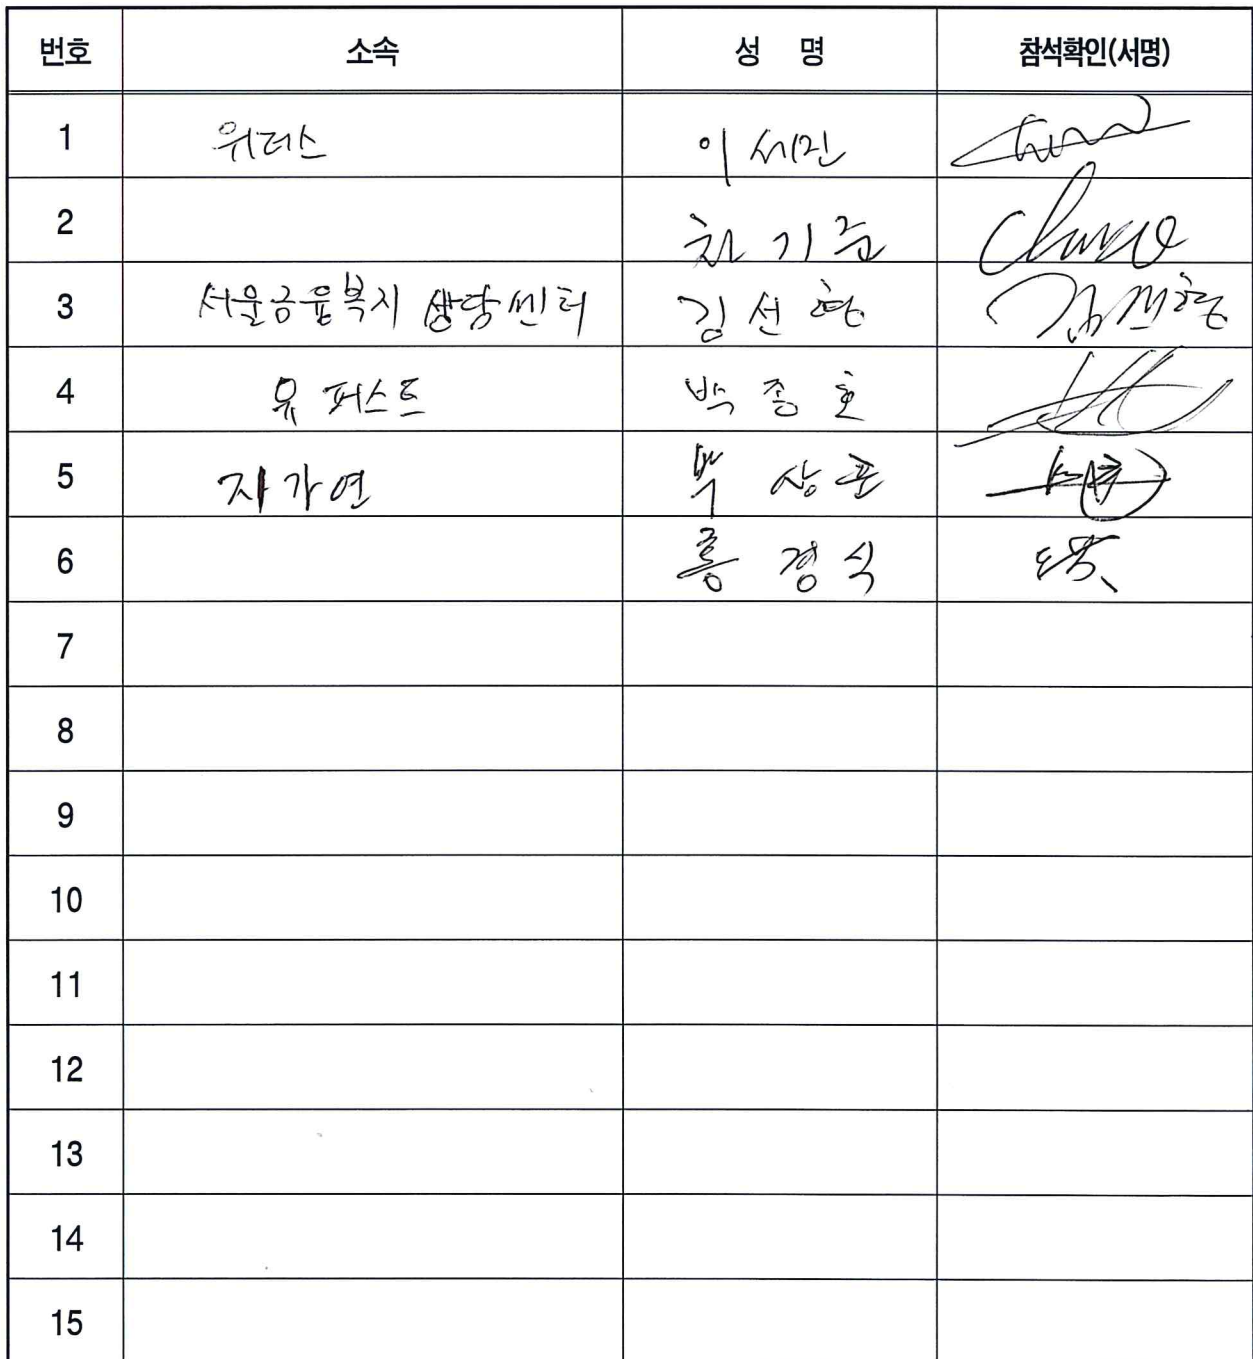 번호 소속 성 명 참석확인(서명)
1 위더스 이세민
2 기준
3 서울금융복지 상담센터 김선 김선
4 유퍼스트 박종호
5 자가연 상
6 홍경식
7
8
9
10
11
12
13
14
15